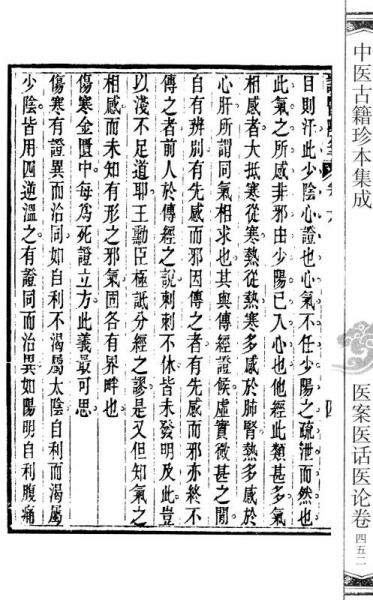 中医古籍珍本集成
医案医话医论卷
四五二
四
目則汗此少陰心證也心氣不任少陽之疏泄而然也
此氣之所感非邪由少陽已入心也他經此類甚多氣
相感者大抵寒從寒熱從熱寒多感於肺腎熱多感於
心肝所謂同氣相求也其與傳經證候虛實微甚之間
自有辨別有先感而邪因傳之者有先感而邪亦終不
傳之者前人於傳經之說刺刺不休皆未發明及此豈
以淺不足道耶王勳臣極詆分經之謬是又但知氣之
相感而未知有形之邪氣固各有界畔也
傷寒金匱中每爲死證立方此義最可思
傷寒有證異而治同如自利不渴屬太陰自利而渴屬
少陰皆用四逆溫之有證同而治異如陽明自利腹痛